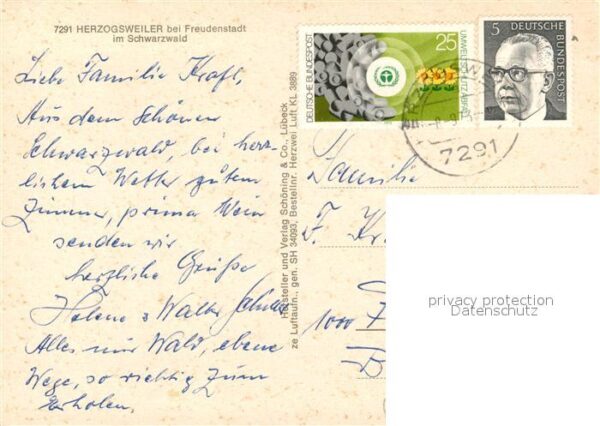 7291 HERZOGSWEILER bei Freudenstadt
im Schwarzwald
Liebe Familie Kraft,
Aus dem Schönen
Schwarzwald, bei herz
lichem Wetter gutem
Zimmer, prima Wein
senden wir
herzliche Grüße
Helene & Walter
Alles nur Wald, ebene
Wege, so richtig zum
Erholen.
Hersteller und Verlag Schöning & Co., Lübeck
ze Luftaufn., gen. SH 34093, Bestellnr. Herzwei Luft KL 3889
DEUTSCHE BUNDESPOST
25
UMWELTSCHUTZ ABFALL
5
DEUTSCHE
BUNDESPOST
7291
Familie
F. Kr
1000
B
privacy protection
Datenschutz